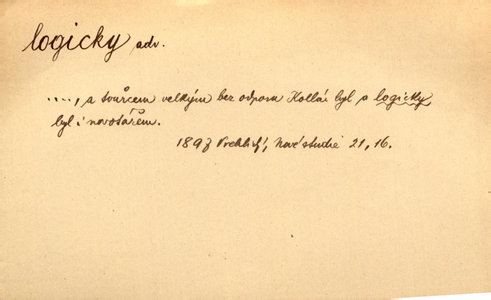 logicky adv.
...., a tvůrcem velkým bez odporu Kollár byl a logicky
byl i novotářem.
189 Nové studie 21, 16.